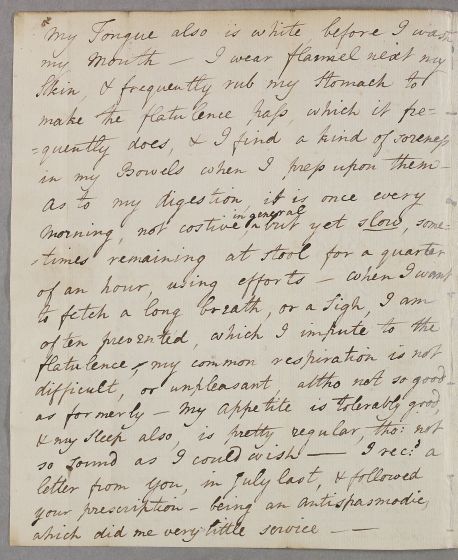 My Tongue also is white, before I wash
my Mouth — I wear flannel next my
Skin, & frequently rub my Stomach to
make the flatulence pass, which it fre-
=quently does, & I find a kind of soreness
in my Bowels when I press upon them—
As to my digestion, it is once every
in general
morning, not costive ^ but yet slow, some-
-times remaining at stool for a quarter
of an hour, using efforts — when I want
to fetch a long breath, or a Sigh, I am
often prevented, which I impute to the
flatulence, my common respiration is not
difficult, or unpleasant, altho not so good
as formerly — My appetite is tolerably good,
& my Sleep also, is pretty regular, tho: not
so sound as I could wish — I rec:d a
letter from you, in July last, & followed
your prescription — being an antispasmodic,
which did me very little service —